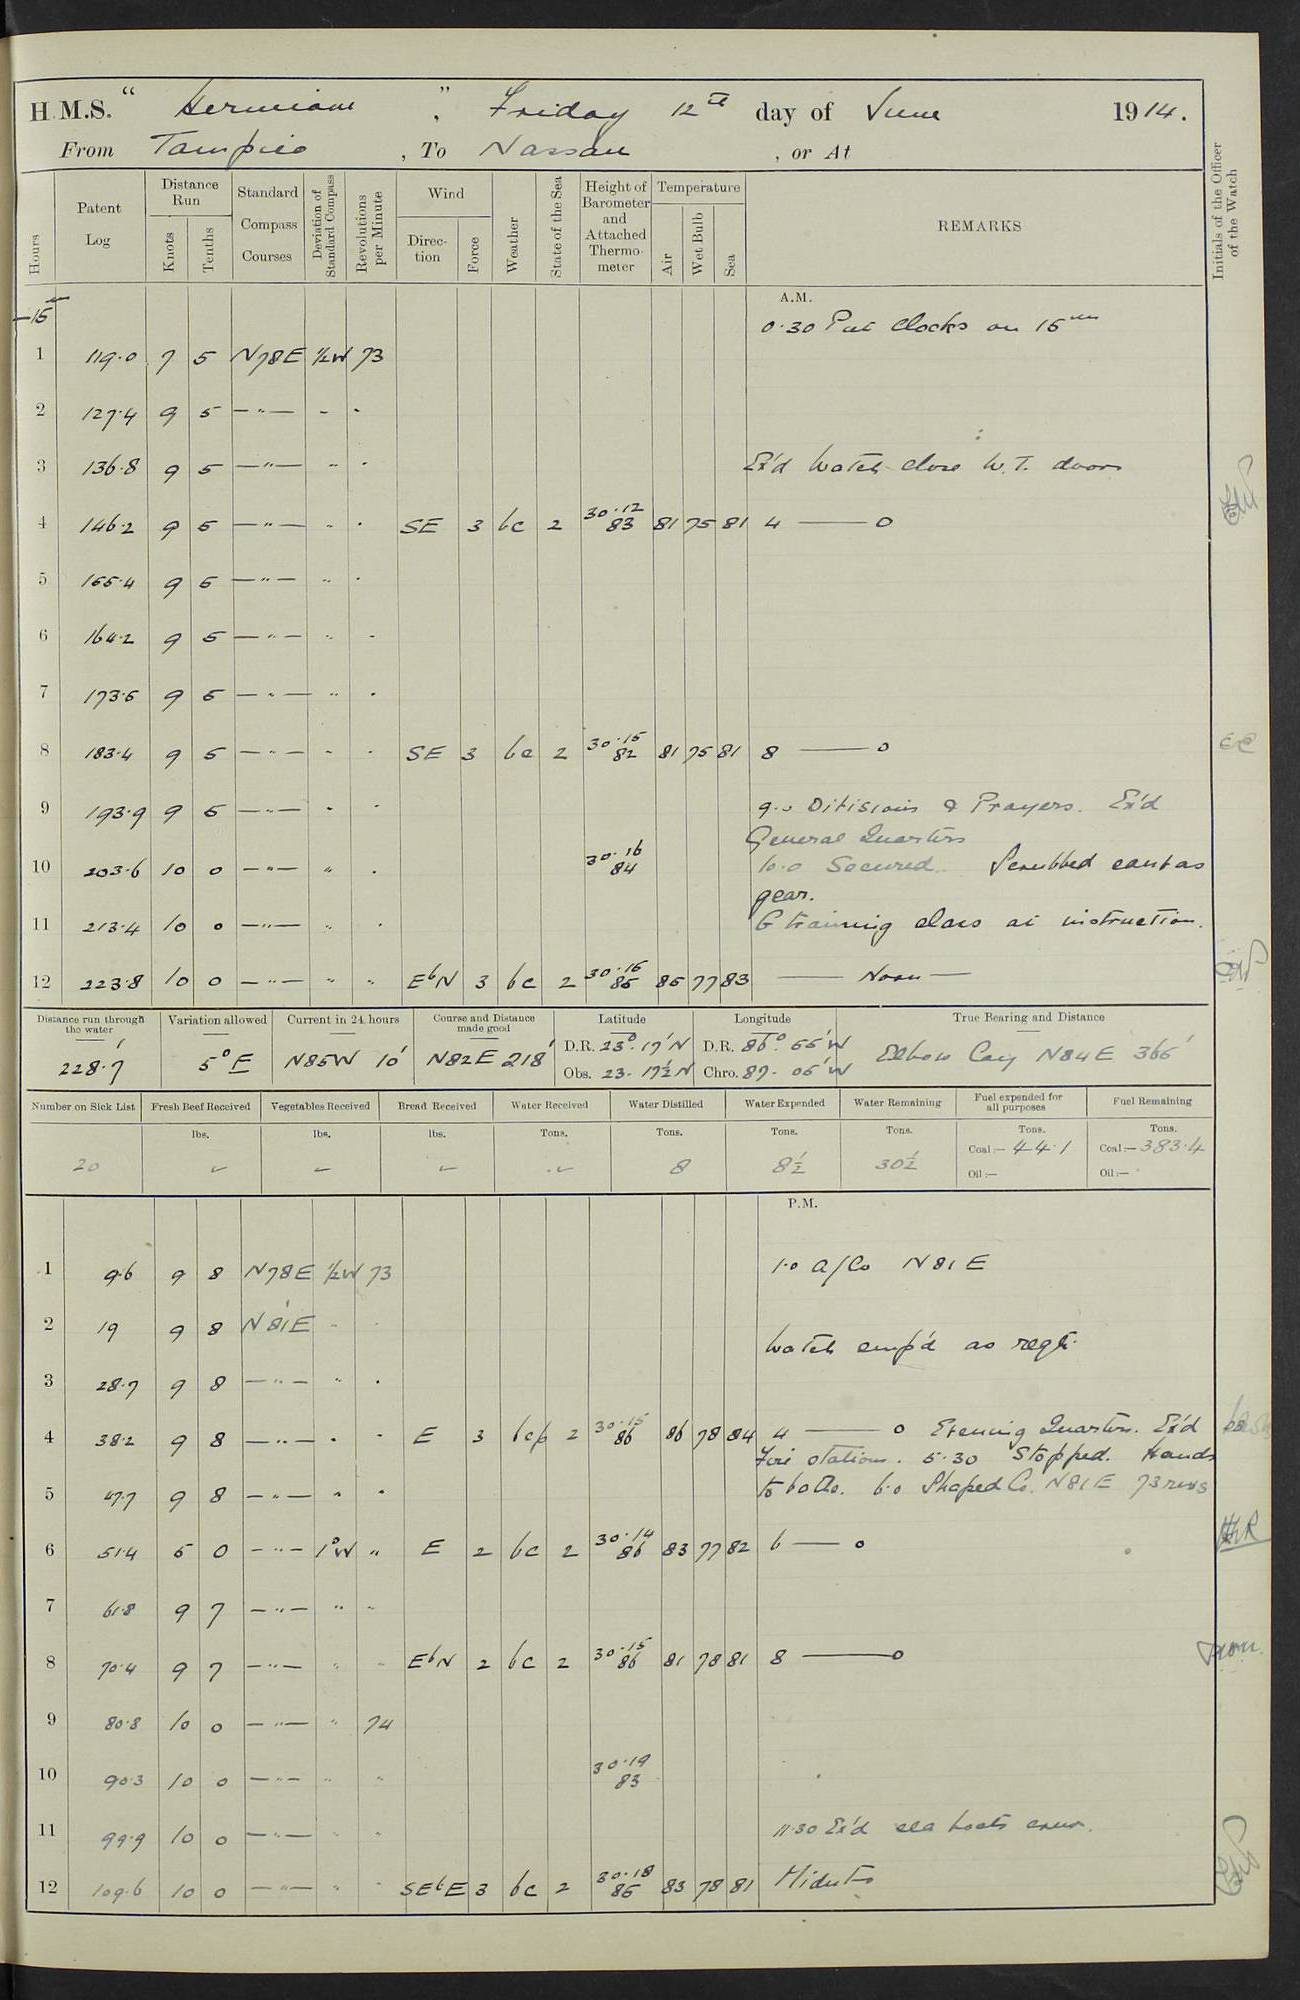 H.M.S. “ Hermione ” , Friday 12th day of June 1914.
From Tampico , To Nassau , or At
Hours
Patent Log
Distance Run
Knots Tenths
Standard Compass Courses
Deviation of Standard Compass
Revolutions per Minute
Wind
Direc-tion Force
Weather
State of the Sea
Height of Barometer and Attached Thermo-meter
Temperature
Air Wet Bulb Sea
REMARKS
Initials of the Officer of the Watch
A.M.
-15m 0.30 Put Clocks on 15min
1 119.0 7 5 N78E ½W 73
2 127.4 9 5 —"— " "
3 136.8 9 5 —"— " " Ex'd Watch close W.T. doors
4 146.2 9 5 —"— " " SE 3 bc 2 30.12 83 81 75 81 4 —— 0
5 155.4 9 5 —"— " "
6 164.2 9 5 —"— " "
7 173.5 9 5 —"— " "
8 183.4 9 5 —"— " " SE 3 bc 2 30.15 82 81 75 81 8 —— 0
9 193.9 9 5 —"— " " 9.0 Divisions & Prayers. Ex'd
General Quarters
10 203.6 10 0 —"— " " 30.16 84 10.0 Secured. Scrubbed canvas
gear.
11 213.4 10 0 —"— " " G training class at instruction.
12 223.8 10 0 —"— " " EbN 3 bc 2 30.16 85 85 77 83 —— Noon ——
Distance run through the water
228.7
Variation allowed
5° E
Current in 24 hours
N85W 10'
Course and Distance made good
N82E 218'
Latitude
D.R. 23° 17' N
Obs. 23. 17½ N
Longitude
D.R. 86° 55' W
Chro. 87. 05' W
True Bearing and Distance
Elbow Cay N84E 365'
Number on Sick List Fresh Beef Received Vegetables Received Bread Received Water Received Water Distilled Water Expended Water Remaining Fuel expended for all purposes Fuel Remaining
lbs. lbs. lbs. Tons. Tons. Tons. Tons. Tons. Tons.
20 8 8½ 30½ Coal:— 44.1 Coal:— 383.4
Oil:— Oil:—
P.M.
1 9.6 9 8 N78E ½W 73 1.0 A/Co N81E
2 19 9 8 N81E " "
Watch emp'd as reqte.
3 28.7 9 8 —"— " "
4 38.2 9 8 —"— " " E 3 bcp 2 30.15 86 86 78 84 4 —— 0 Evening Quarters. Ex'd
Fire stations. 5.30 Stopped. Hands
5 47.7 9 8 —"— " " to bathe. 6.0 Shaped Co. N81E 73 revs
6 51.4 5 0 —"— 1°W " E 2 bc 2 30.14 86 83 77 82 6 —— 0
7 61.8 9 7 —"— " "
8 70.4 9 7 —"— " " EbN 2 bc 2 30.15 86 81 78 81 8 —— 0
9 80.8 10 0 —"— " 74
10 90.3 10 0 —"— " " 30.19 83
11 99.9 10 0 —"— " " 11.30 Ex'd sea boats crew.
12 109.6 10 0 —"— " " SEbE 3 bc 2 30.18 85 83 78 81 Midnt